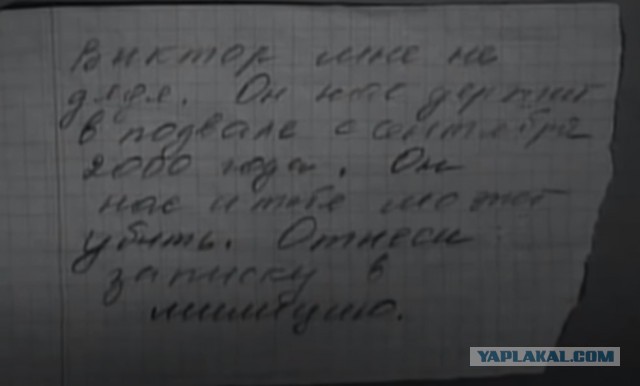 Виктор мне не
дядя. Он нас держит
в подвале с сентября
2000 года. Он
нас и тебя может
убить. Отнеси
записку в
милицию.
YAPLAKAL.COM